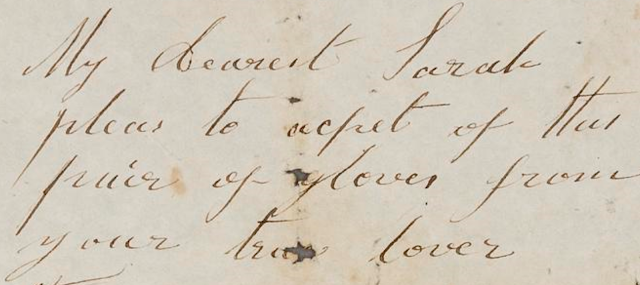 My dearest Sarah
pleas to acpet of this
pair of gloves from
your true lover